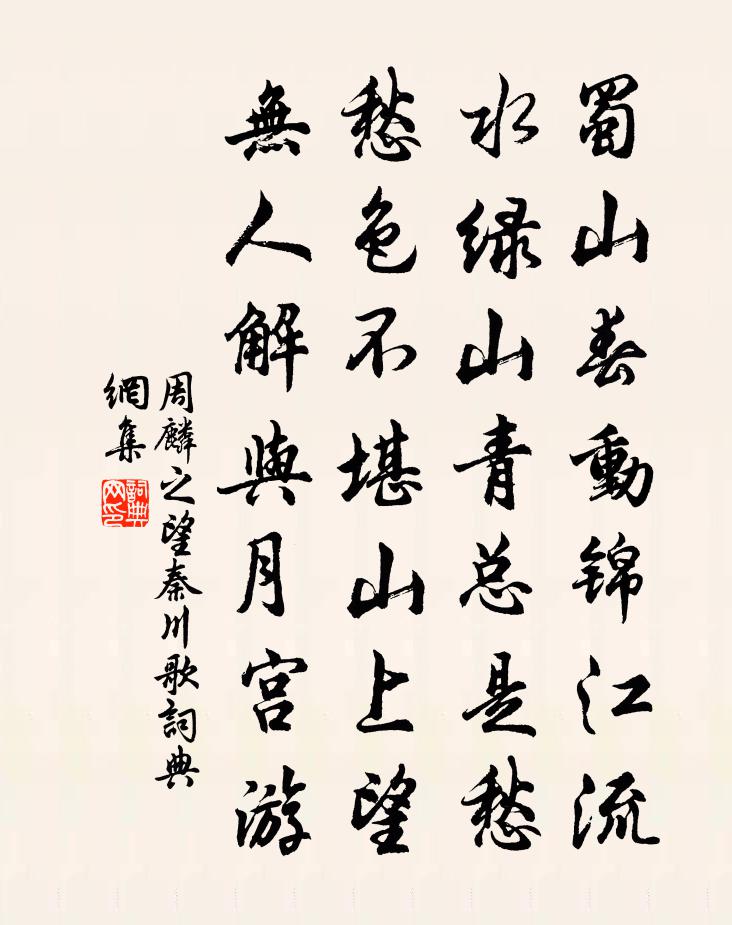 蜀山春動锦江流
水绿山青总是愁
愁色不堪山上望
無人解與月宫游
周麟之望秦川歌詞典
網集
詞典
网印